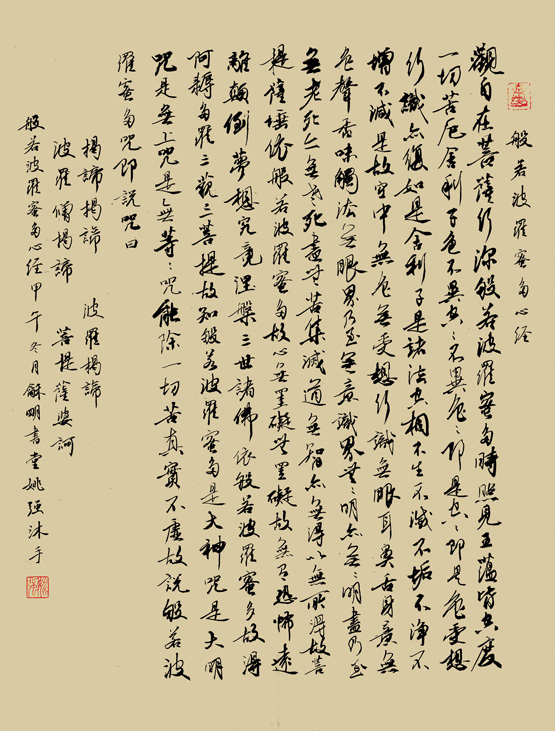 般若波羅蜜多心經
觀自在菩薩行深般若波羅蜜多時照見五蘊皆空度
一切苦厄舍利子色不異空空不異色色即是空空即是色受想
行識亦復如是舍利子是諸法空相不生不滅不垢不淨不
增不減是故空中無色無受想行識無眼耳鼻舌身意無
色聲香味觸法無眼界乃至無意識界無無明亦無無明盡乃至
無老死亦無老死盡無苦集滅道無智亦無得以無所得故菩
提薩埵依般若波羅蜜多故心無罣礙無罣礙故無有恐怖遠
離顛倒夢想究竟涅槃三世諸佛依般若波羅蜜多故得
阿耨多羅三藐三菩提故知般若波羅蜜多是大神咒是大明
咒是無上咒是無等等咒能除一切苦真實不虛故說般若波
羅蜜多咒即說咒曰
揭諦揭諦 波羅揭諦
波羅僧揭諦 菩提薩婆訶
般若波羅蜜多心經甲午冬月龢明書堂姚強沐手